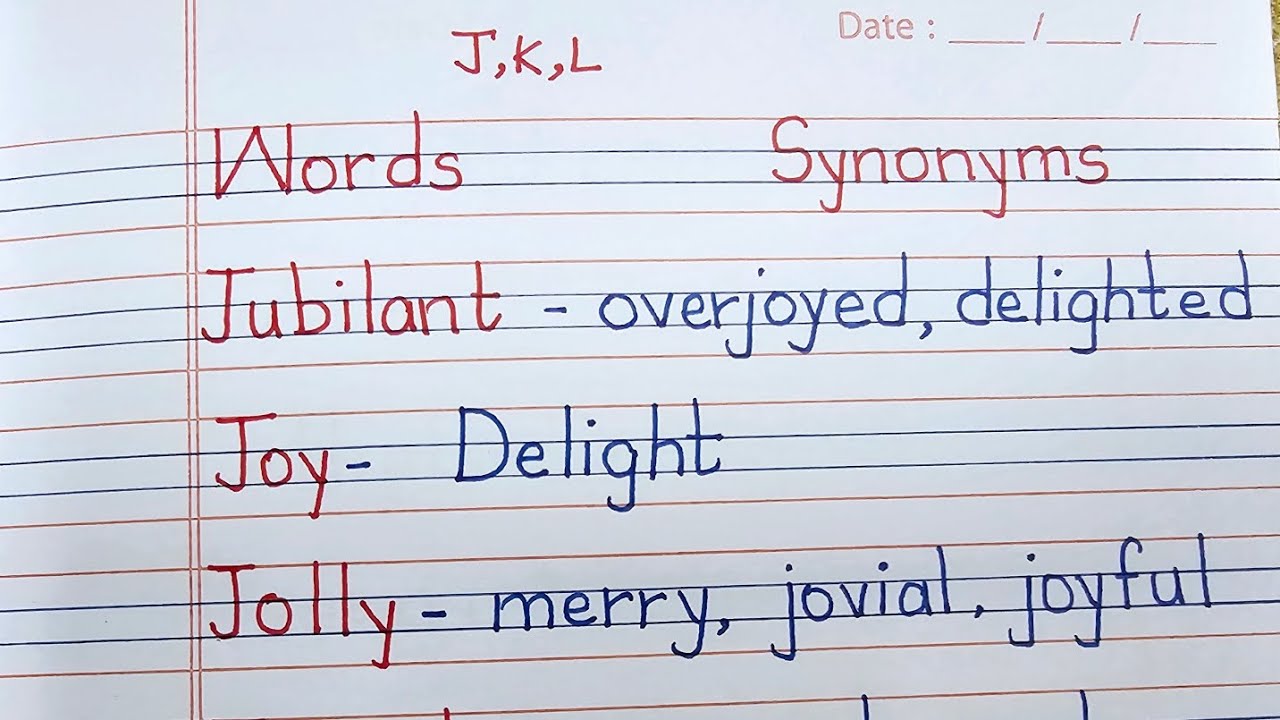 Date : ___/___/___
J,K,L
Words Synonyms
Jubilant - overjoyed, delighted
Joy - Delight
Jolly - merry, jovial, joyful